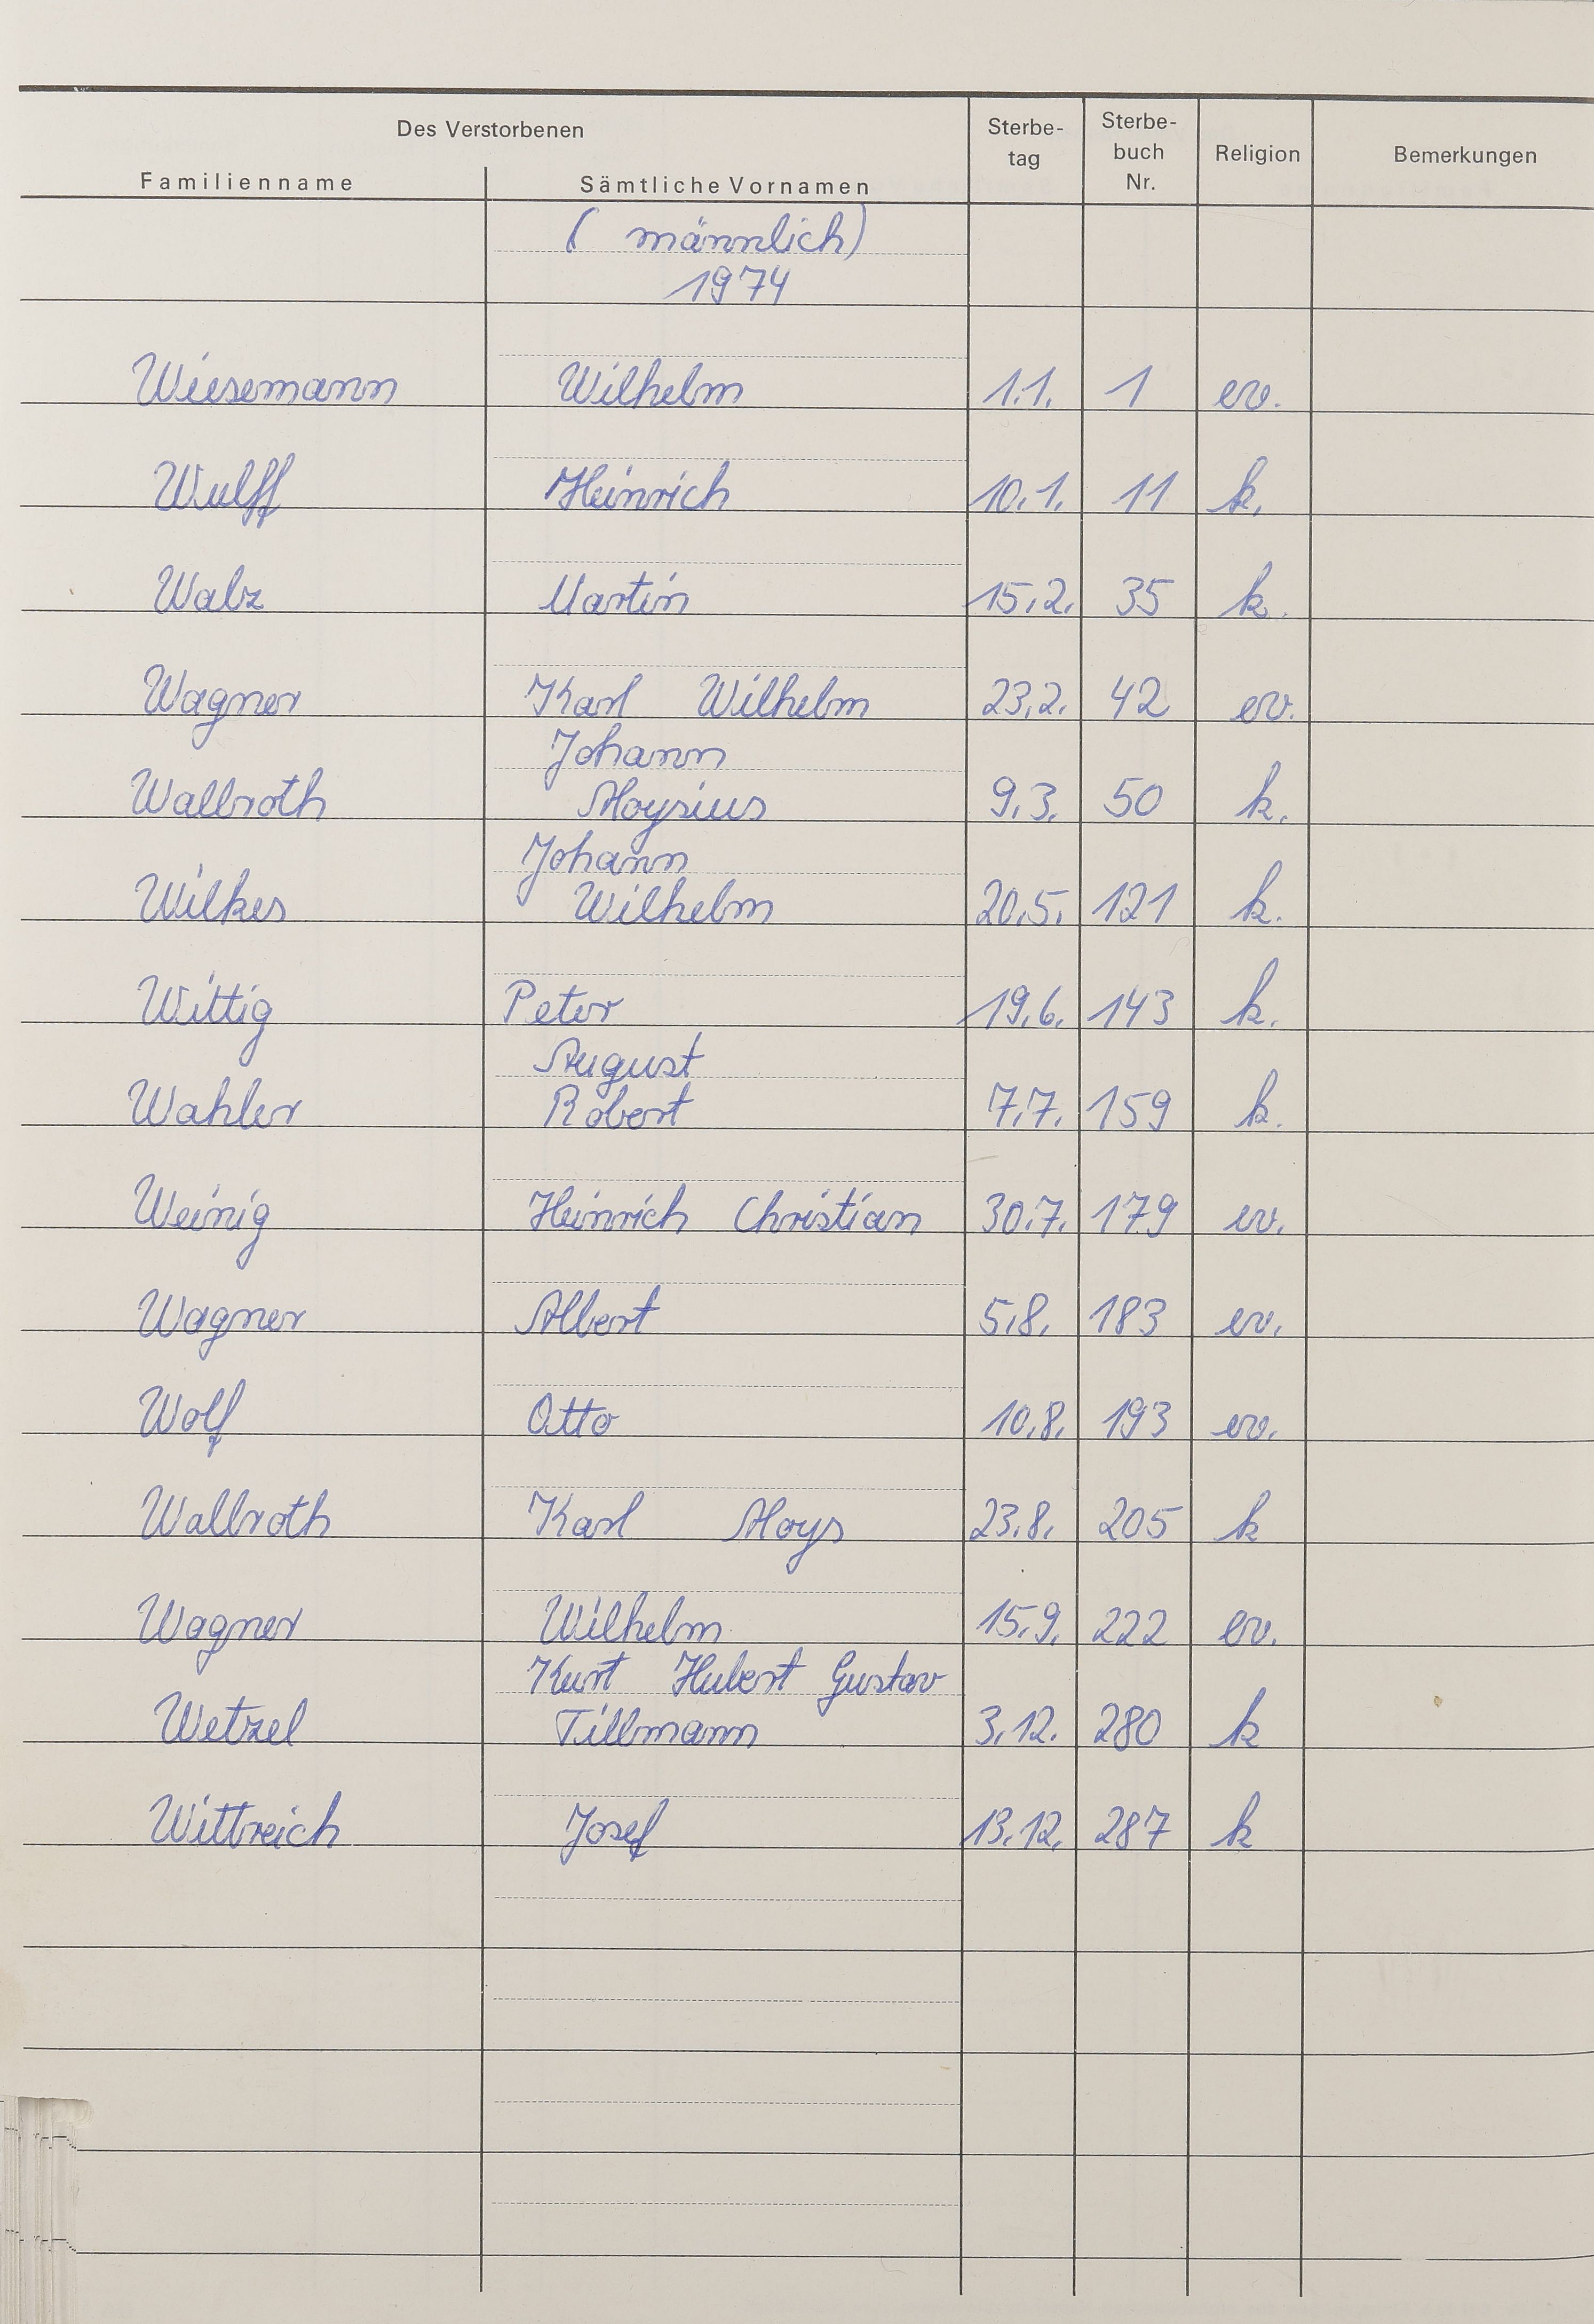 Des Verstorbenen
Familienname Sämtliche Vornamen Sterbe-
tag Sterbe-
buch
Nr. Religion Bemerkungen
(männlich)
1974
Wiesemann Wilhelm 1.1. 1 ev.
Wulff Heinrich 10.1. 11 k.
Walz Martin 15.2. 35 k.
Wagner Karl Wilhelm 23.2. 42 ev.
Johann
Wallroth Aloysius 9.3. 50 k.
Johann
Wilkes Wilhelm 20.5. 121 k.
Wittig Peter 19.6. 143 k.
August
Wahler Robert 7.7. 159 k.
Weinig Heinrich Christian 30.7. 179 ev.
Wagner Albert 5.8. 183 ev.
Wolf Otto 10.8. 193 ev.
Wallroth Karl Aloys 23.8. 205 k
Wagner Wilhelm 15.9. 222 ev.
Kurt Hubert Gustav
Wetzel Tillmann 3.12. 280 k
Wittreich Josef 13.12. 287 k